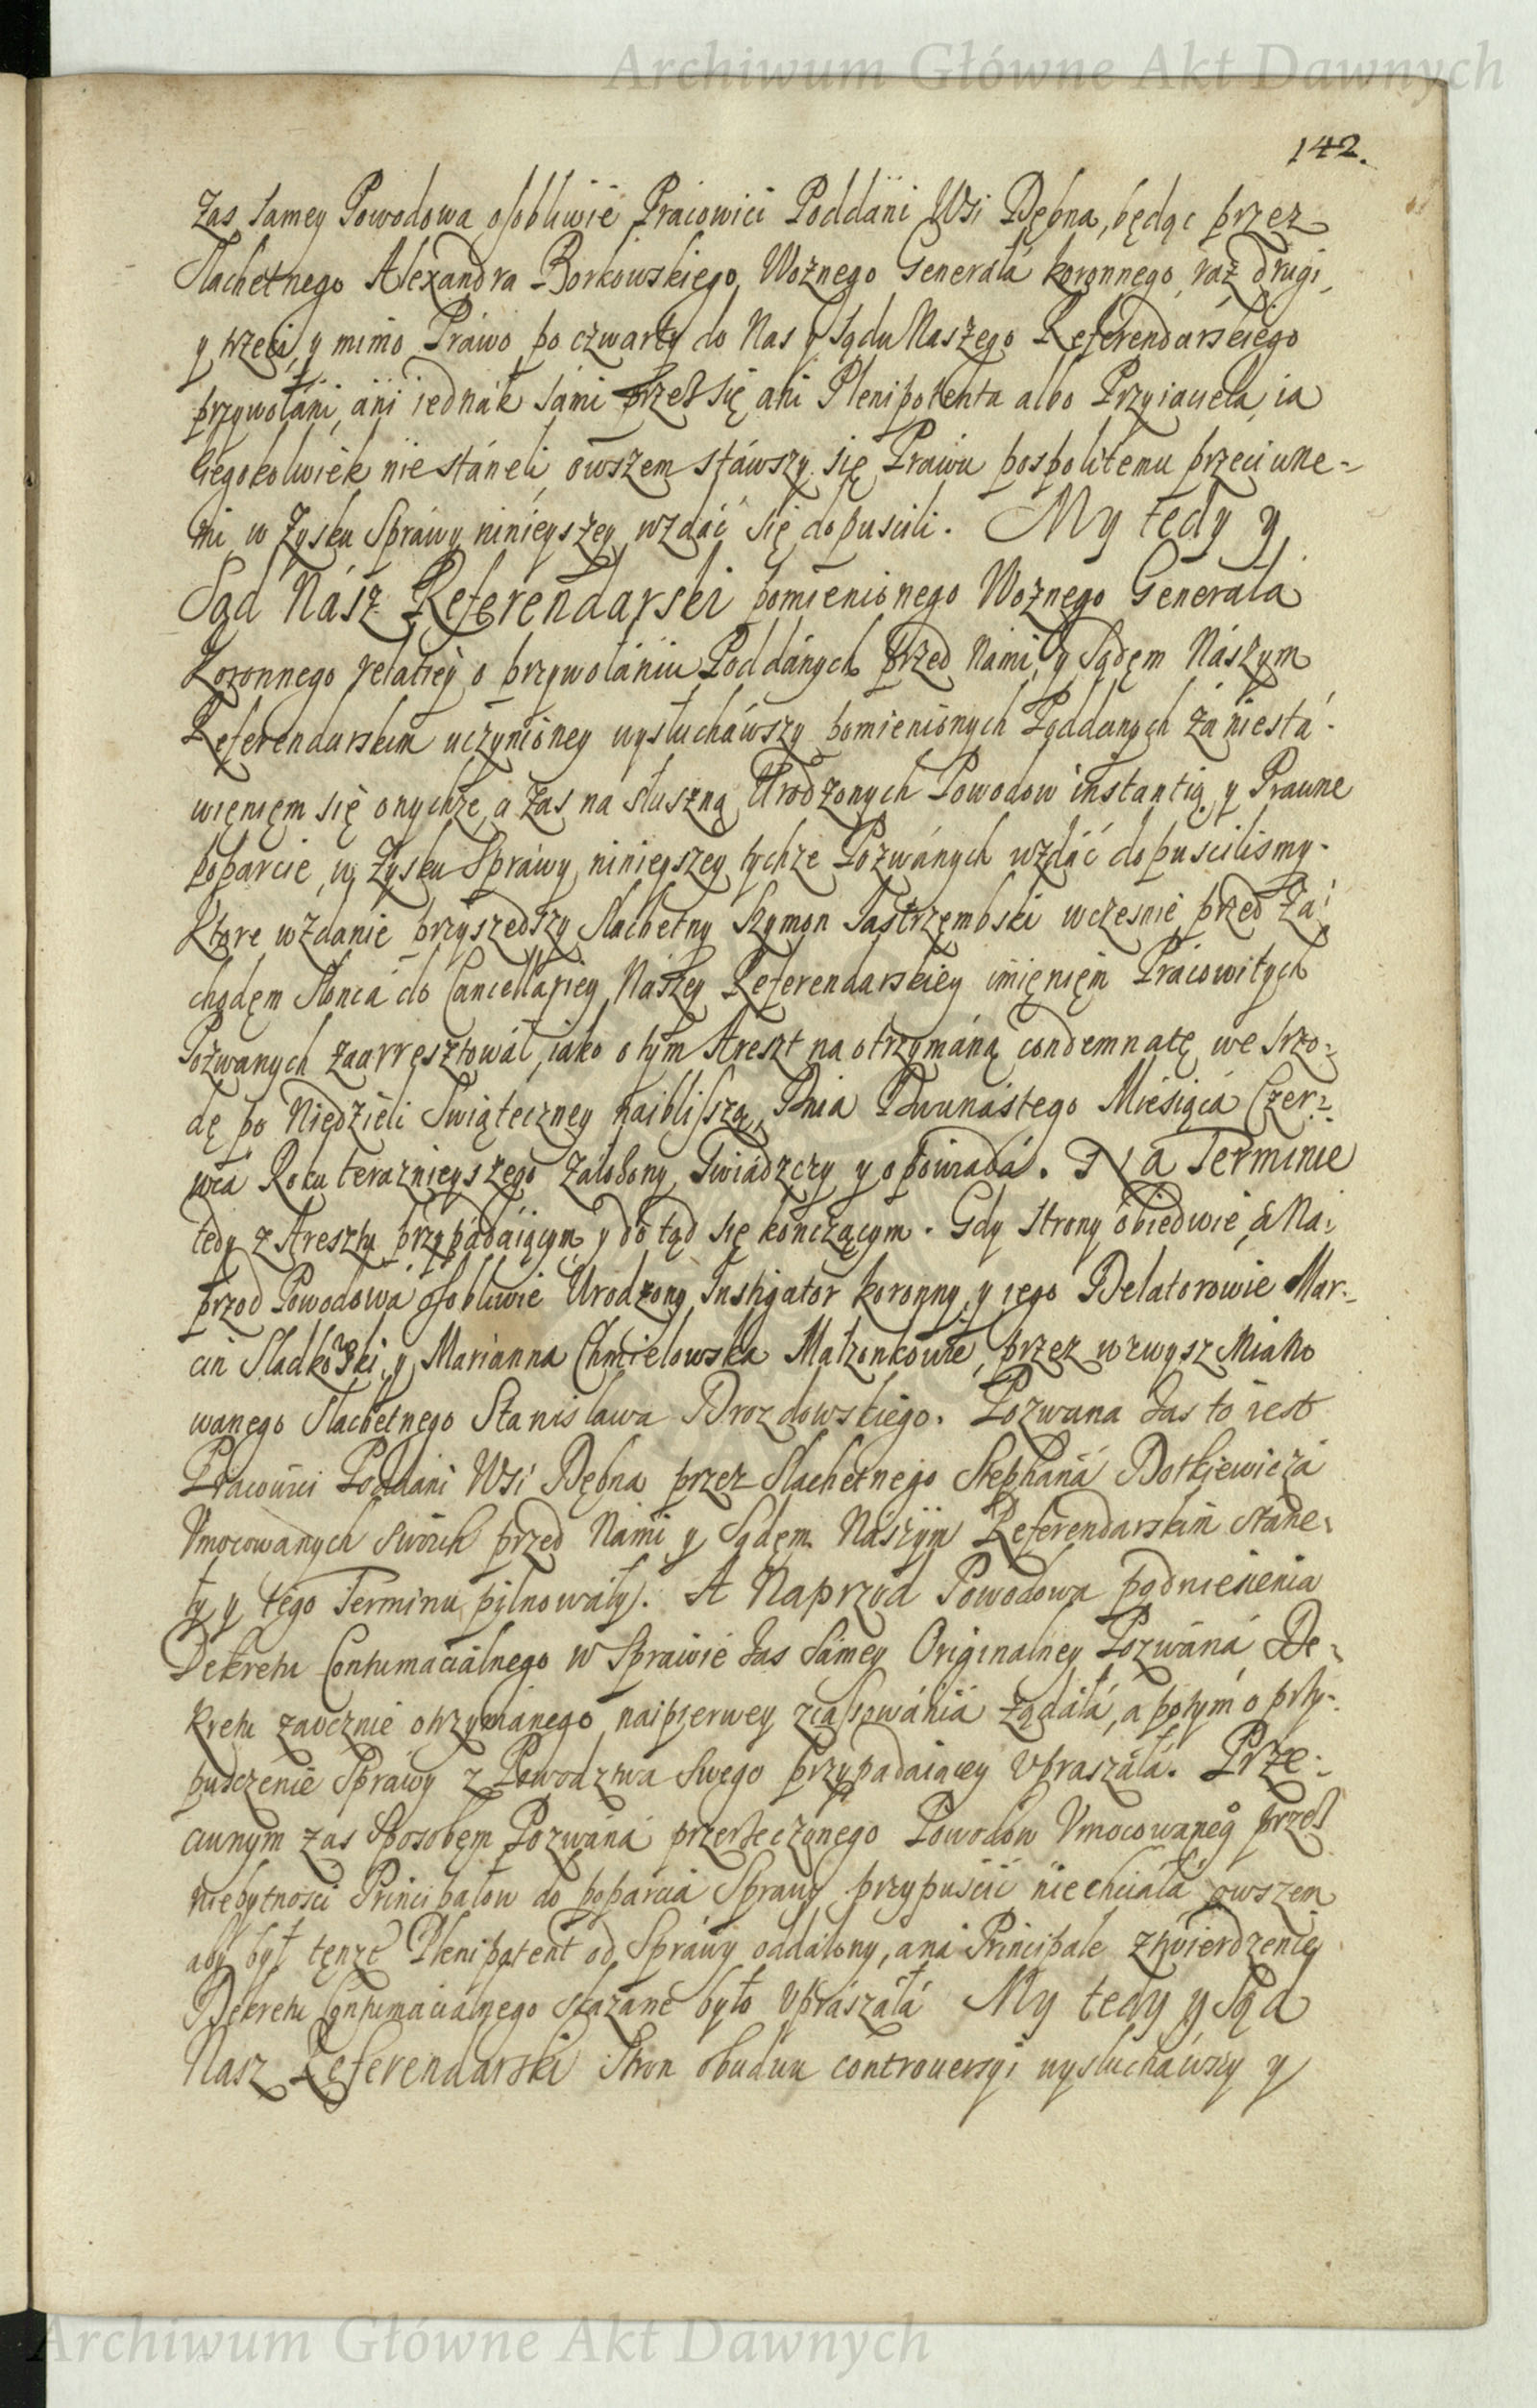 Archiwum Główne Akt Dawnych
142.
zas samey Powodowa osobliwie Pracowici Poddani Wsi Dębna, będąc przez
Slachetnego Alexandra Borkowskiego, Woznego Generała koronnego, raz drugi,
y trzeci, y mimo Prawo po czwarty do Nas y Sądu Naszego Referendarskiego
przywołani, ani iednak sami przes się ani Plenipotenta albo Przyiaciela ia
kiegokolwiek nie staneli, owszem stawszy się Prawu pospolitemu przeciwne-
mi, w Zysku Sprawy ninieyszey wzdać się dopuscili. My tedy y
Sąd Nász Referendarski pomienionego Woznego Generała
Koronnego relatiey o przywołaniu Poddánych przed Nami, y Sądęm Nászym
Referendarskim uczynioney wysłucháwszy pomienionych Poddanych za niestá-
więnięm się onychze, a zas na słuszną Urodzonych Powodow instantią y Prawne
poparcie, w Zysku Sprawy ninieyszey tychze Pozwánych wzdáć dopuscilismy.
Ktore wzdanie przyszedszy Slachetny Szymon Jastrzęmbski wczesnie przed Za-
chodęm Słonca do Cancellariey Nászey Referendarskiey imięnięm Prácowitych
Pozwanych zaarręsztował, iako o tym Areszt na otrzymáną condemnatę we srzo-
dę po Niedzieli Swiąteczney naiblisszą, Dnia Dwunástego Miesiąca Czer-
wca Roku terazniegszego załozony, swiádczy y opowiada. Na Terminie
tedy z Aresztu przypádaiącym, y do tąd się kończącym. Gdy strony obiedwie, a Na-
przod Powodowa osobliwie Urodzony Instigator koronny, y iego Delatorowie Mar-
cin Sladkowski, y Marianna Chmielowska Małzonkowie, przez wzwysz Miano
wanego Slachetnego Stanisława Drozdowskiego. Pozwana zas to iest
Pracowici Poddani Wsi Dębna przez Slachetnego Stephana Botkiewicza
Umocowanych swoich przed Nami y Sądęm Naszym Referendarskim stane-
ły y tego Terminu pilnowały. A Naprzod Powodowa podniesienia
Dekretu Contumacialnego w Sprawie zas samey Originalney Pozwáná De-
kretu zaocznie otrzymanego, naipierwey zcassowánia ządałá, a potym o przy-
pusczenie Spráwy z Powodztwa swego przypadaiącey upraszałá. Prze-
ciwnym zas sposobęm Pozwána przerzeczonego Powodow Umocowanego przes
niebytnosci Principałow do poparcia Sprawy przypuscić niechciała owszem
aby był tęnze Plenipotent od Spráwy oddalony, a na Principale ztwierdzenie
Dekretu Contumacialnego skazane było upraszałá My tedy y Sąd
Nasz Referendarski Stron obudwu controuersyi wysłucháwszy y
Archiwum Główne Akt Dawnych